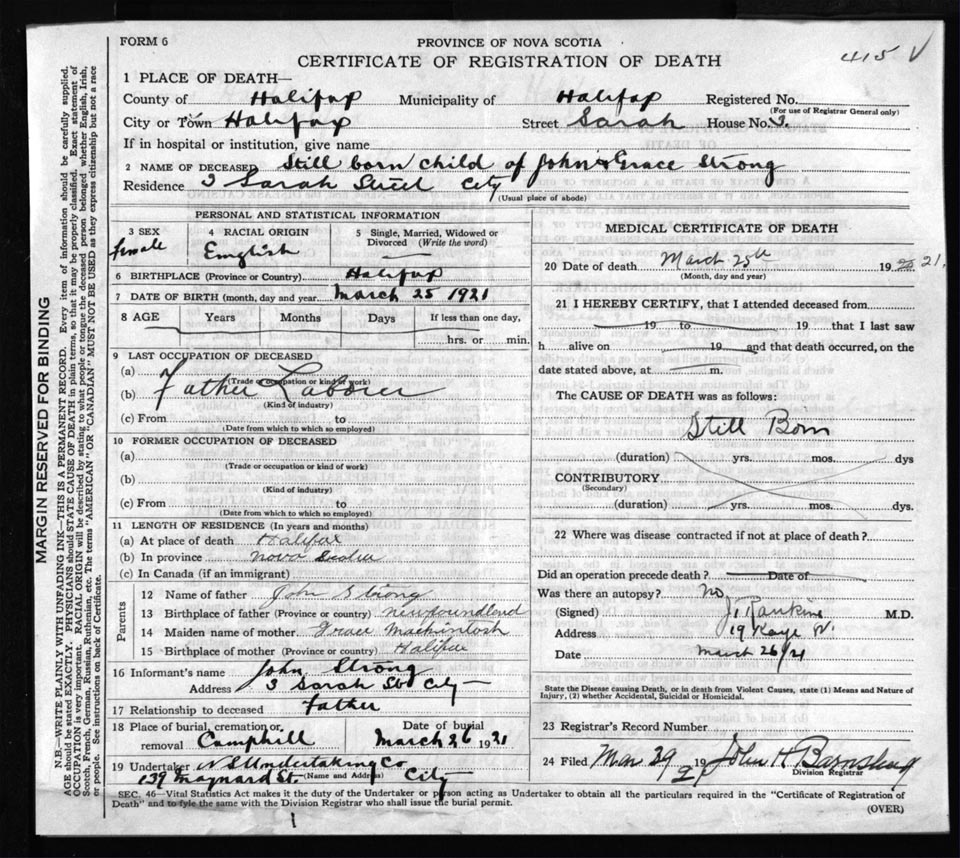 FORM 6
PROVINCE OF NOVA SCOTIA
CERTIFICATE OF REGISTRATION OF DEATH
415 V
1 PLACE OF DEATH—
County of Halifax Municipality of Halifax Registered No.
(For use of Registrar General only)
City or Town Halifax Street Sarah House No. 3.
If in hospital or institution, give name
2 NAME OF DECEASED Still born child of John & Grace Strong
Residence 3 Sarah Street City
(Usual place of abode)
PERSONAL AND STATISTICAL INFORMATION
3 SEX female
4 RACIAL ORIGIN English
5 Single, Married, Widowed or Divorced (Write the word)
6 BIRTHPLACE (Province or Country) Halifax
7 DATE OF BIRTH (month, day and year) March 25 1921
8 AGE Years Months Days If less than one day,
hrs. or min.
9 LAST OCCUPATION OF DECEASED
(a)
(Trade or occupation or kind of work)
(b) Father Laborer
(Kind of industry)
(c) From to
(Date from which to which so employed)
10 FORMER OCCUPATION OF DECEASED
(a)
(Trade or occupation or kind of work)
(b)
(Kind of industry)
(c) From to
(Date from which to which so employed)
11 LENGTH OF RESIDENCE (In years and months)
(a) At place of death Halifax
(b) In province Nova Scotia
(c) In Canada (if an immigrant)
Parents
12 Name of father John Strong
13 Birthplace of father (Province or country) Newfoundland
14 Maiden name of mother Grace Mackintosh
15 Birthplace of mother (Province or country) Halifax
16 Informant's name John Strong
Address 3 Sarah St City
17 Relationship to deceased Father
18 Place of burial, cremation or removal Camphill
Date of burial March 26 1921
19 Undertaker N S Undertaking Co
139 Maynard St. (Name and Address) City
MEDICAL CERTIFICATE OF DEATH
20 Date of death March 25th 19 21.
(Month, day and year)
21 I HEREBY CERTIFY, that I attended deceased from
19 to 19 that I last saw
h alive on 19 and that death occurred, on the
date stated above, at m.
The CAUSE OF DEATH was as follows:
Still Born
(duration) yrs. mos. dys
CONTRIBUTORY
(Secondary)
(duration) yrs. mos. dys.
22 Where was disease contracted if not at place of death?
Did an operation precede death? Date of
Was there an autopsy? No
(Signed) Rankine M.D.
Address 19 Kaye
Date March 26/21
State the Disease causing Death, or in death from Violent Causes, state (1) Means and Nature of
Injury, (2) whether Accidental, Suicidal or Homicidal.
23 Registrar's Record Number
24 Filed Mar 29 19 John H Barnstead
Division Registrar
SEC. 46—Vital Statistics Act makes it the duty of the Undertaker or person acting as Undertaker to obtain all the particulars required in the "Certificate of Registration of
Death" and to fyle the same with the Division Registrar who shall issue the burial permit.
(OVER)
MARGIN RESERVED FOR BINDING
N.B.—WRITE PLAINLY WITH UNFADING INK—THIS IS A PERMANENT RECORD. Every item of information should be carefully supplied.
AGE should be stated EXACTLY. PHYSICIANS should STATE CAUSE OF DEATH in plain terms, so that it may be properly classified. Exact statement of
OCCUPATION is very important. RACIAL ORIGIN will be described by stating to what people or tongue the deceased person belonged whether English, Irish,
Scotch, French, German, Russian, Ruthenian, etc. The terms "AMERICAN" OR "CANADIAN" MUST NOT BE USED as they express citizenship but not a race
or people. See instructions on back of Certificate.